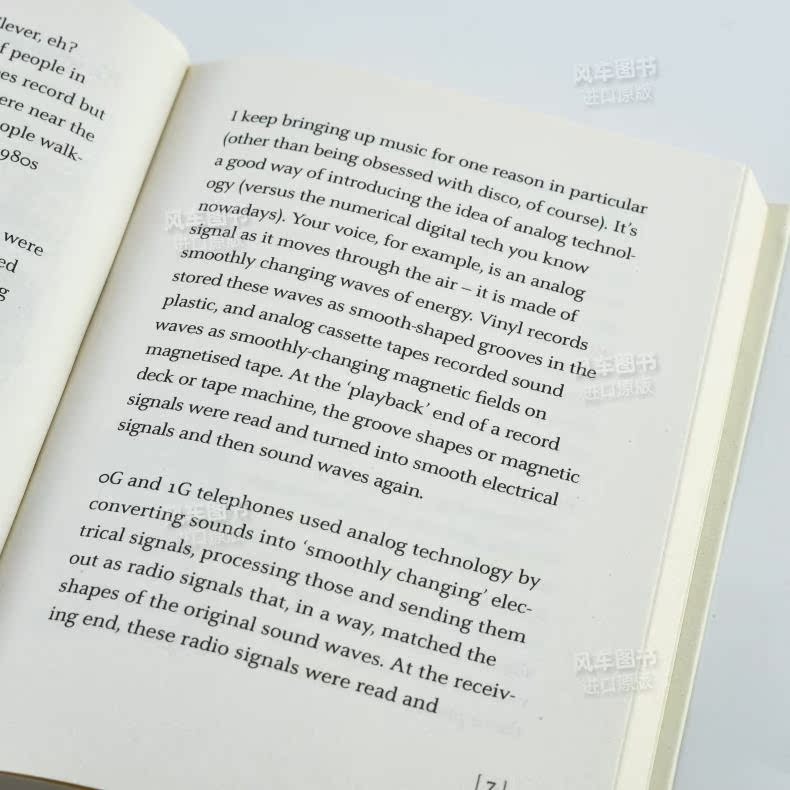 lever, eh?
f people in
es record but
ere near the
ople walk-
980s
were
ed
g
I keep bringing up music for one reason in particular
(other than being obsessed with disco, of course). It's
a good way of introducing the idea of analog technol-
ogy (versus the numerical digital tech you know
nowadays). Your voice, for example, is an analog
signal as it moves through the air – it is made of
smoothly changing waves of energy. Vinyl records
stored these waves as smooth-shaped grooves in the
plastic, and analog cassette tapes recorded sound
waves as smoothly-changing magnetic fields on
magnetised tape. At the 'playback' end of a record
deck or tape machine, the groove shapes or magnetic
signals were read and turned into smooth electrical
signals and then sound waves again.
0G and 1G telephones used analog technology by
converting sounds into 'smoothly changing' elec-
trical signals, processing those and sending them
out as radio signals that, in a way, matched the
shapes of the original sound waves. At the receiv-
ing end, these radio signals were read and
[7]
风车图书
进口原版
风车图书
进口原版
风车图书
进口原版
风车图书
进口原版
风车图书
进口原版